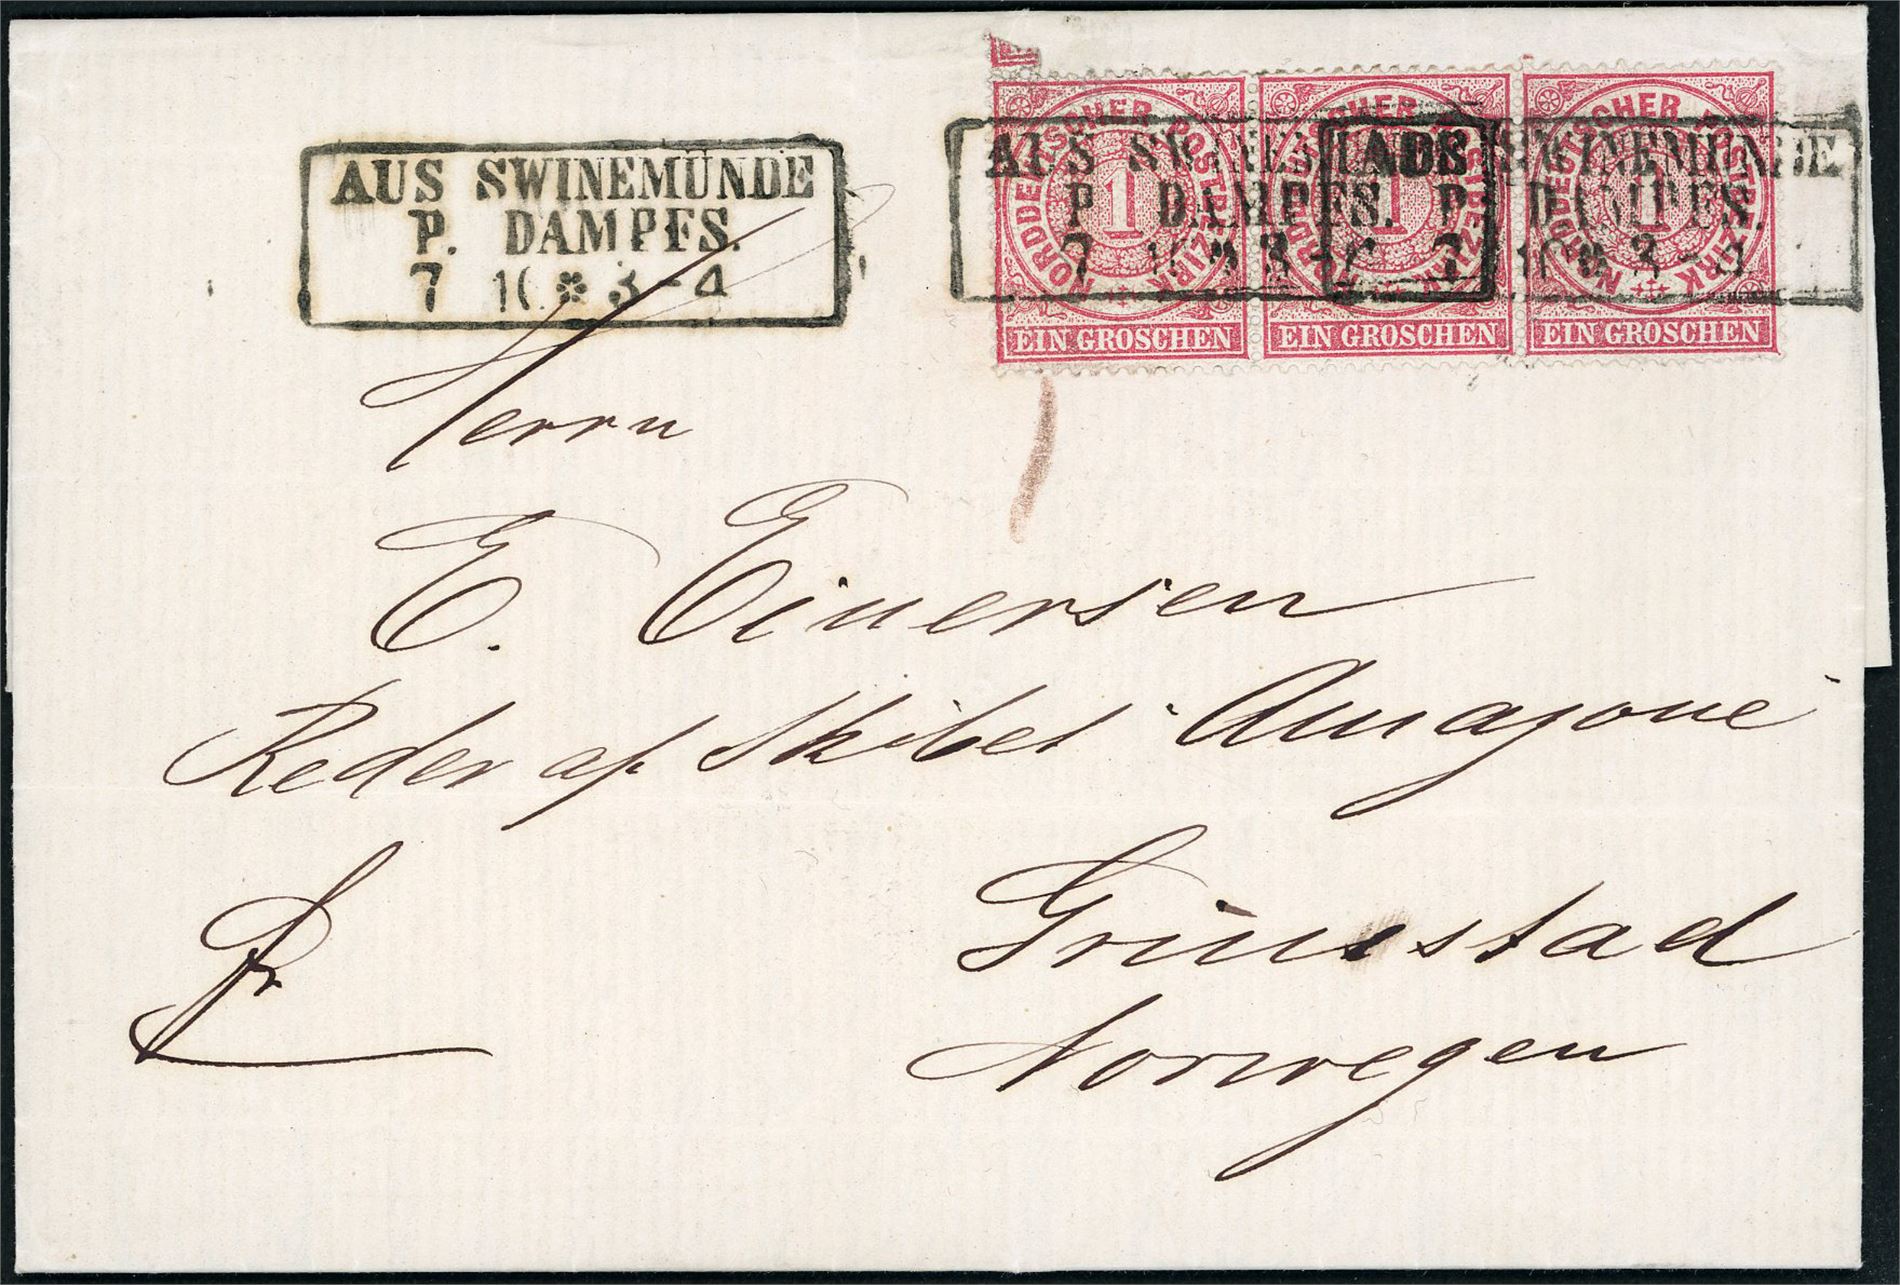 AUS SWINEMÜNDE
P. DAMPFS.
7 10 * 3-4
NORDDEUTSCHER POSTBEZIRK
1
EIN GROSCHEN
NORDDEUTSCHER POSTBEZIRK
1
EIN GROSCHEN
NORDDEUTSCHER POSTBEZIRK
1
EIN GROSCHEN
AUS SWINEMÜNDE
P. DAMPFS.
7 10 * 3-4
AUS SWINEMÜNDE
P. DAMPFS.
7 10 * 3-4
Herrn
E. Eiversen
Reder af Skibet "Amazone"
fr
Grimstad
Norwegen